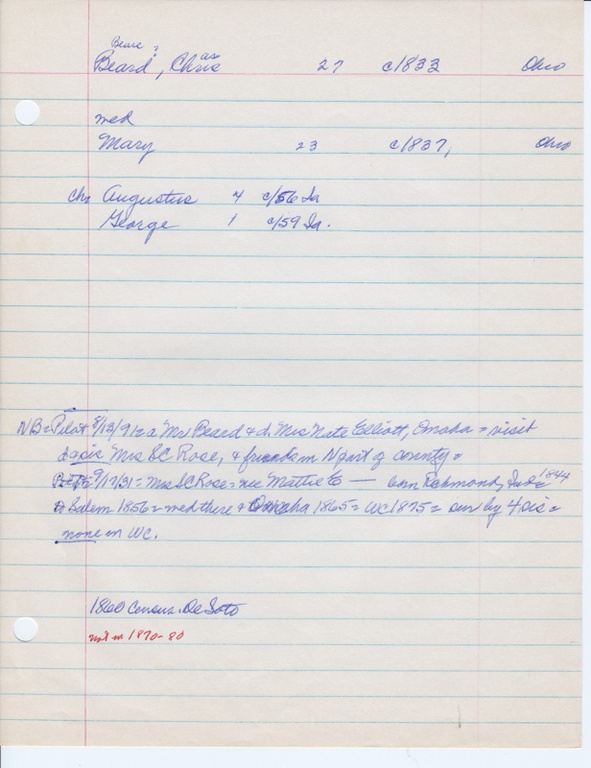 Beare ?
Beard, Chris as 27 c1833 Ohio
med
Mary 23 c1837, Ohio
chn Augustus 4 c/56 Ia
George 1 c/59 Ia.
NB = Pilot 8/13/91 = a Mr Beard & d. Mrs Nate Elliott, Omaha = visit
sis Mrs SC Rose, & friends in N part of county =
9/17/31 = Mrs SC Rose = nee Mattie E — born Richmond, Ind = 1844
Salem 1856 = med there & Omaha 1865 = WC 1875 = sur by 4 sis =
none in WC.
1860 Census. DeSoto
not in 1870-80